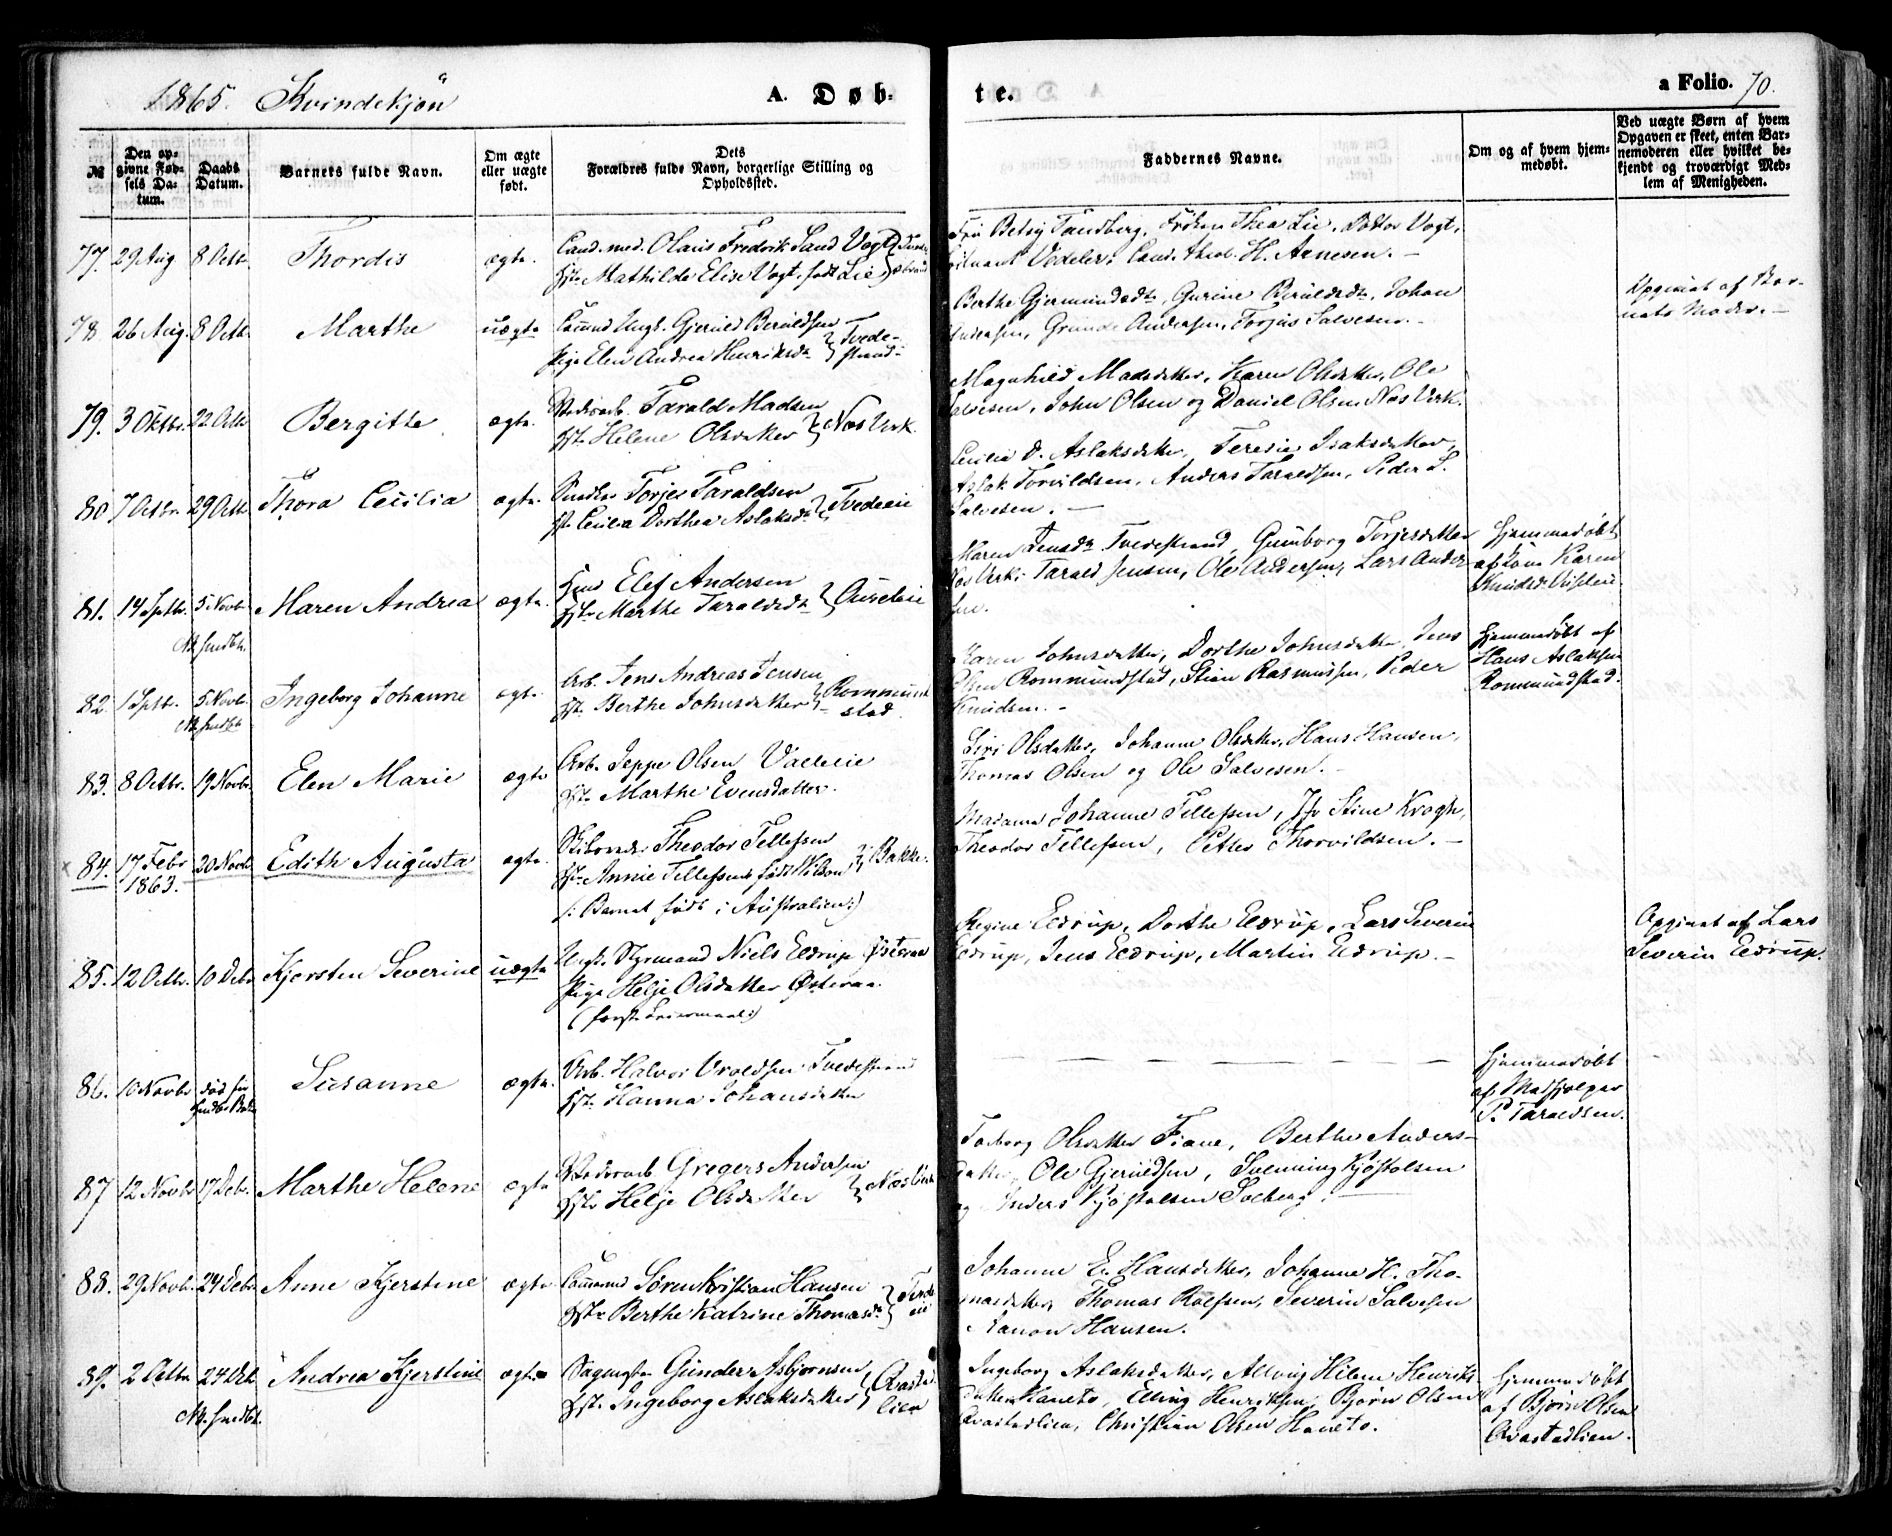 1865. Kvindekjön
A. Døb-
te.
a Folio. 70.
№
Den op-
givne Fød-
sels Da-
tum.
Daabs
Datum.
Barnets fulde Navn.
Om ægte
eller uægte
født.
Dets
Forældres fulde Navn, borgerlige Stilling og
Opholdssted.
Faddernes Navne.
Om og af hvem hjem-
medøbt.
Ved uægte Børn af hvem
Opgaven er skeet, enten Bar-
nemoderen eller hvilket be-
kjendt og troværdigt Med-
lem af Menigheden.
77. 29 Aug 8 Octb. Thordis ægte. Cand. med. Olaus Fredrik Sand Vogt
Hst. Mathilde Elise Vogt, født Lie
Fru Betsy Sandberg, Frøken Thea Lie, Doktor Vogt,
Vedeler, Cand. theol. H. Arnesen.
78 26 Aug. 8 Octb. Marthe uægte Ungk. Gjeruld Beruldsen
Pige Elen Andrea Henriksdr Tvede-
strand
Berthe Gjermundsdtr, Gurine Beruldsdtr, Johan
Andersen, Grunde Andersen, Torjus Salvesen.
Opgivet af Bar-
nets Moder.
79. 3 Oktbr. 22 Octb Bergithe ægte. Tarald Madsen
Hst. Helene Olsdatter Næs Verk.
Magnhild Madsdatter, Karen Olsdatter, Ole
Salvesen, John Olsen og Daniel Olsen Næs Verk.
80 7 Octbr. 29 Octb. Thora Cecilia ægte. Torjer Taraldsen
Hst. Cecilia Dorthea Aslaksdr
Cecilia D. Aslaksdatter, Teresie Isaksdatter,
Aslak Torvildsen, Anders Taraldsen, Peder S.
Salvesen.
81. 14 Sptbr. 5 Novb. Maren Andrea ægte. Elef Andersen
Hst. Marthe Taraldsdr
Maren Jensdr Tvedestrand, Gunborg Torjesdatter
Næs Verk, Tarald Jensen, Ole Andersen, Lars Ander
sen.
Hjemmedøbt
af Karen
Knudsd.
82. 1 Sptb. 5 Novb. Ingeborg Johanne ægte. Arb. Jens Andreas Jensen
Hst. Berthe Johnsdatter Rommund
stad.
Karen Johnsdatter, Dorthe Johnsdatter, Jens
Olsen Rommundstad, Stian Rasmussen, Peder
Knudsen.
Hjemmedøbt af
Hans Aslaksen
Rommundstad.
83. 8 Octbr. 19 Novbr. Elen Marie ægte Arb. Jeppe Olsen
Hst. Marthe Evensdatter.
Siri Olsdatter, Johanne Olsdatter, Hans Hansen,
Thomas Olsen og Ole Salvesen.
84. 17 Febr
1863. 20 Novb. Edith Augusta ægte. Theodor Tellefsen
Hst. Annie Tellefsen født Wilson Bakke.
/: Barnet født i Australien :/
Madame Johanne Tellefsen, Jfr Stine Krogh,
Theodor Tellefsen, Petter Thorvildsen.
85. 12 Octbr. 10 Debr Kjersten Severine uægte Ungk. Styrmand Niels Eldrup Østeraa
Pige Helje Olsdatter Østeraa.
Regine Eldrup, Dorthe Eldrup, Lars Severin
Eldrup, Jens Eldrup, Martin Eldrup.
Opgivet af Lars
Severin Eldrup.
86. 10 Novbr død før
Susanne ægte. Arb. Halvor Uroldsen Tvedestrand
Hst. Hanna Johansdatter
Hjemmedøbt
af
P. Taraldsen.
87 12 Novbr 17 Debr. Marthe Helene ægte Gregers Andersen
Hst. Helje Olsdatter
Olsdatter Fiane, Berthe Anders-
datter, Ole Gjeruldsen, Svenning Kjøstolsen
og Anders Kjøstolsen Solberg.
88. 29 Novbr. 24 Debr. Anne Kjerstine ægte Søren Kristian Hansen
Hst. Berthe Katrine Thomasdr
Johanne E. Hansdatter, Johanne H. Tho-
masdatter, Thomas Rolfsen, Severin Salvesen
Aanon Hansen.
89. 2 Octbr 24 Andrea Kjerstine ægte Gunder Asbjørnsen
Hst. Ingeborg Aslaksdatter
Ingeborg Aslaksdatter, Henriks-
datter Haneto, Elling Henriksen, Bjørn Olsen
Avastadlien, Christian Olsen Haneto.
Hjemmedøbt
af Bjørn Olsen
Avastadlien.